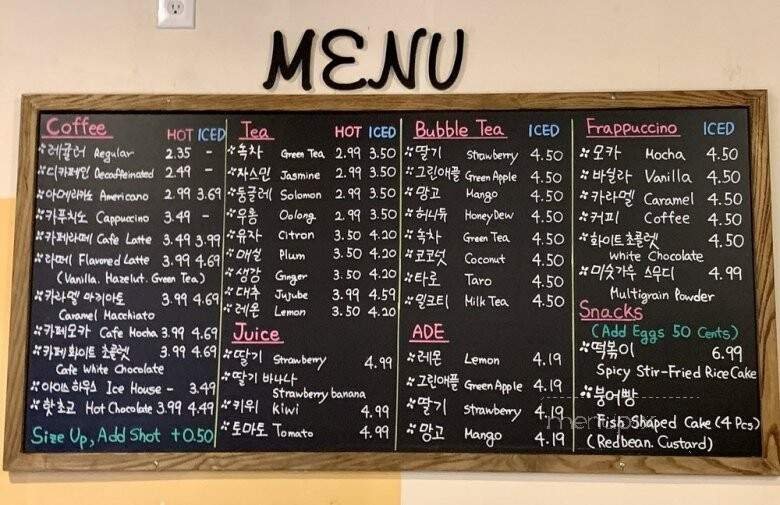 MENU
Coffee HOT ICED
레귤러 Regular 2.35 -
디카페인 Decaffeinated 2.49 -
아메리카노 Americano 2.99 3.69
카푸치노 Cappuccino 3.49 -
카페라떼 Cafe Latte 3.49 3.99
라떼 Flavored Latte 3.99 4.69
(Vanilla. Hazelut. Green Tea)
카라멜 마키아토 3.99 4.69
Caramel Macchiato
카페모카 Cafe Mocha 3.99 4.69
카페 화이트 초콜렛 3.99 4.69
Cafe White Chocolate
아이스 하우스 Ice House - 3.49
핫초코 Hot Chocolate 3.99 4.49
Size Up, Add Shot +0.50
Tea HOT ICED
녹차 Green Tea 2.99 3.50
자스민 Jasmine 2.99 3.50
둥굴레 Solomon 2.99 3.50
우롱 Oolong 2.99 3.50
유자 Citron 3.50 4.20
매실 Plum 3.50 4.20
생강 Ginger 3.50 4.20
대추 Jujube 3.99 4.59
레몬 Lemon 3.50 4.20
Juice
딸기 Strawberry 4.99
딸기 바나나
Strawberry banana
키위 Kiwi 4.99
토마토 Tomato 4.99
Bubble Tea ICED
딸기 Strawberry 4.50
그린애플 Green Apple 4.50
망고 Mango 4.50
허니듀 HoneyDew 4.50
녹차 Green Tea 4.50
코코넛 Coconut 4.50
타로 Taro 4.50
밀크티 Milk Tea 4.50
ADE
레몬 Lemon 4.19
그린애플 Green Apple 4.19
딸기 Strawberry 4.19
망고 Mango 4.19
Frappuccino ICED
모카 Mocha 4.50
바닐라 Vanilla 4.50
카라멜 Caramel 4.50
커피 Coffee 4.50
화이트 초콜렛 4.50
White Chocolate
미숫가루 스무디 4.99
Multigrain Powder
Snacks
(Add Eggs 50 Cents)
떡볶이 6.99
Spicy Stir-Fried Rice Cake
붕어빵
Fish Shaped Cake (4 Pcs)
(Redbean. Custard)